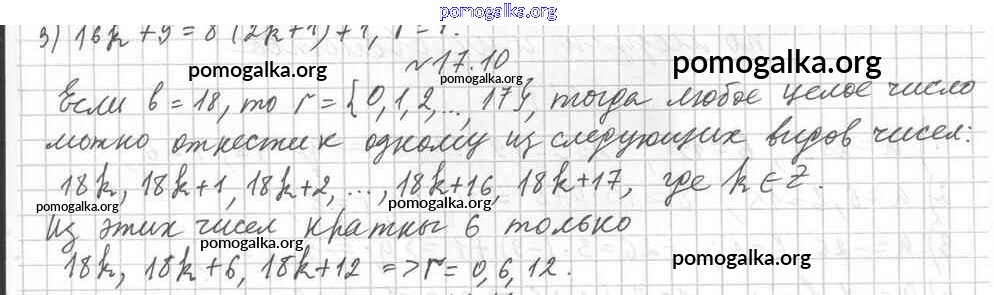 pomogalka.org
3) 16k + 9 = 8(2k+1)+1, r = 1.
№17.10
pomogalka.org pomogalka.org pomogalka.org
Если b = 18, то r = {0, 1, 2, ..., 17}, тогда любое целое число
можно отнести к одному из следующих видов чисел:
18k, 18k+1, 18k+2, ..., 18k+16, 18k+17, где k ∈ Z.
pomogalka.org pomogalka.org
Из этих чисел кратны 6 только
pomogalka.org
18k, 18k+6, 18k+12 => r = 0, 6, 12.
pomogalka.org